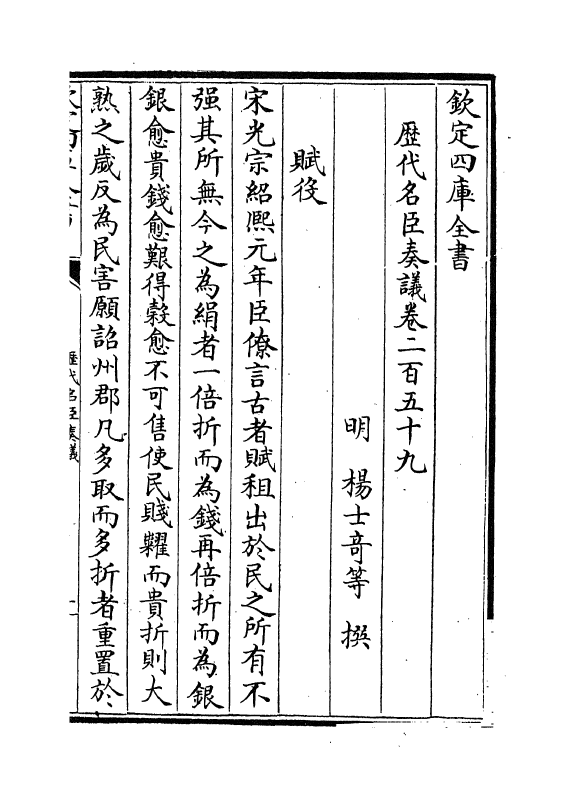 欽定四庫全書
歷代名臣奏議卷二百五十九
明 楊士竒等 撰
賦役
宋光宗紹熙元年臣僚言古者賦租出於民之所有不
强其所無今之為絹者一倍折而為錢再倍折而為銀
銀愈貴錢愈艱得榖愈不可售使民賤糶而貴折則大
熟之歲反為民害願詔州郡凡多取而多折者重置於
歷代名臣奏議